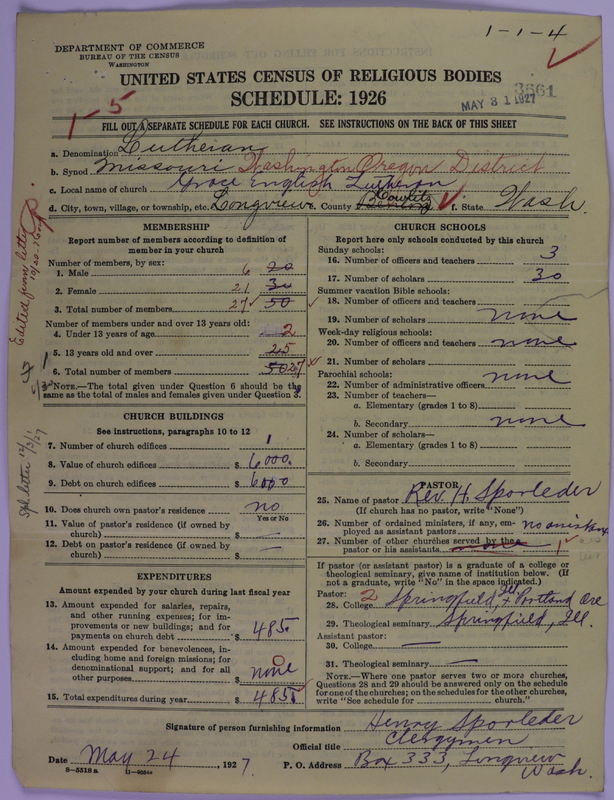 1-1-4
DEPARTMENT OF COMMERCE
BUREAU OF THE CENSUS
WASHINGTON
UNITED STATES CENSUS OF RELIGIOUS BODIES
SCHEDULE: 1926
3661
MAY 31 1927
1-5
FILL OUT A SEPARATE SCHEDULE FOR EACH CHURCH. SEE INSTRUCTIONS ON THE BACK OF THIS SHEET
a. Denomination Lutheran
b. Synod Missouri Washington Oregon District
c. Local name of church Grace English Lutheran
d. City, town, village, or township, etc. Longview e. County Cowlitz f. State Wash.
Edited from letter
Spl. letter
MEMBERSHIP
Report number of members according to definition of
member in your church
Number of members, by sex:
1. Male 6 20
2. Female 21 30
3. Total number of members 27 50
Number of members under and over 13 years old:
4. Under 13 years of age 2
5. 13 years old and over 25
6. Total number of members 50 27
NOTE.—The total given under Question 6 should be the
same as the total of males and females given under Question 3.
CHURCH BUILDINGS
See instructions, paragraphs 10 to 12
7. Number of church edifices 1
8. Value of church edifices $ 6000.
9. Debt on church edifices $ 6000
10. Does church own pastor's residence no
Yes or No
11. Value of pastor's residence (if owned by
church) $ —
12. Debt on pastor's residence (if owned by
church) $ —
EXPENDITURES
Amount expended by your church during last fiscal year
13. Amount expended for salaries, repairs,
and other running expenses; for im-
provements or new buildings; and for
payments on church debt $ 485.
14. Amount expended for benevolences, in-
cluding home and foreign missions; for
denominational support; and for all
other purposes $ none
15. Total expenditures during year $ 485
CHURCH SCHOOLS
Report here only schools conducted by this church
Sunday schools:
16. Number of officers and teachers 3
17. Number of scholars 30
Summer vacation Bible schools:
18. Number of officers and teachers
19. Number of scholars none
Week-day religious schools:
20. Number of officers and teachers none
21. Number of scholars
Parochial schools:
22. Number of administrative officers none
23. Number of teachers—
a. Elementary (grades 1 to 8)
b. Secondary none
24. Number of scholars—
a. Elementary (grades 1 to 8)
b. Secondary
PASTOR
25. Name of pastor Rev. H. Sporleder
(If church has no pastor, write "None")
26. Number of ordained ministers, if any, em-
ployed as assistant pastors
27. Number of other churches served by the
pastor or his assistants none 1
If pastor (or assistant pastor) is a graduate of a college or
theological seminary, give name of institution below. (If
not a graduate, write "No" in the space indicated.)
Pastor: 2
28. College Springfield, Ill. + Portland Ore
29. Theological seminary Springfield, Ill.
Assistant pastor:
30. College —
31. Theological seminary —
NOTE.—Where one pastor serves two or more churches,
Questions 28 and 29 should be answered only on the schedule
for one of the churches; on the schedules for the other churches,
write "See schedule for ........ church."
Signature of person furnishing information Henry Sporleder
Official title Clergymen
Date May 24, 1927. P. O. Address Box 333, Longview
Wash.
8-5318 a